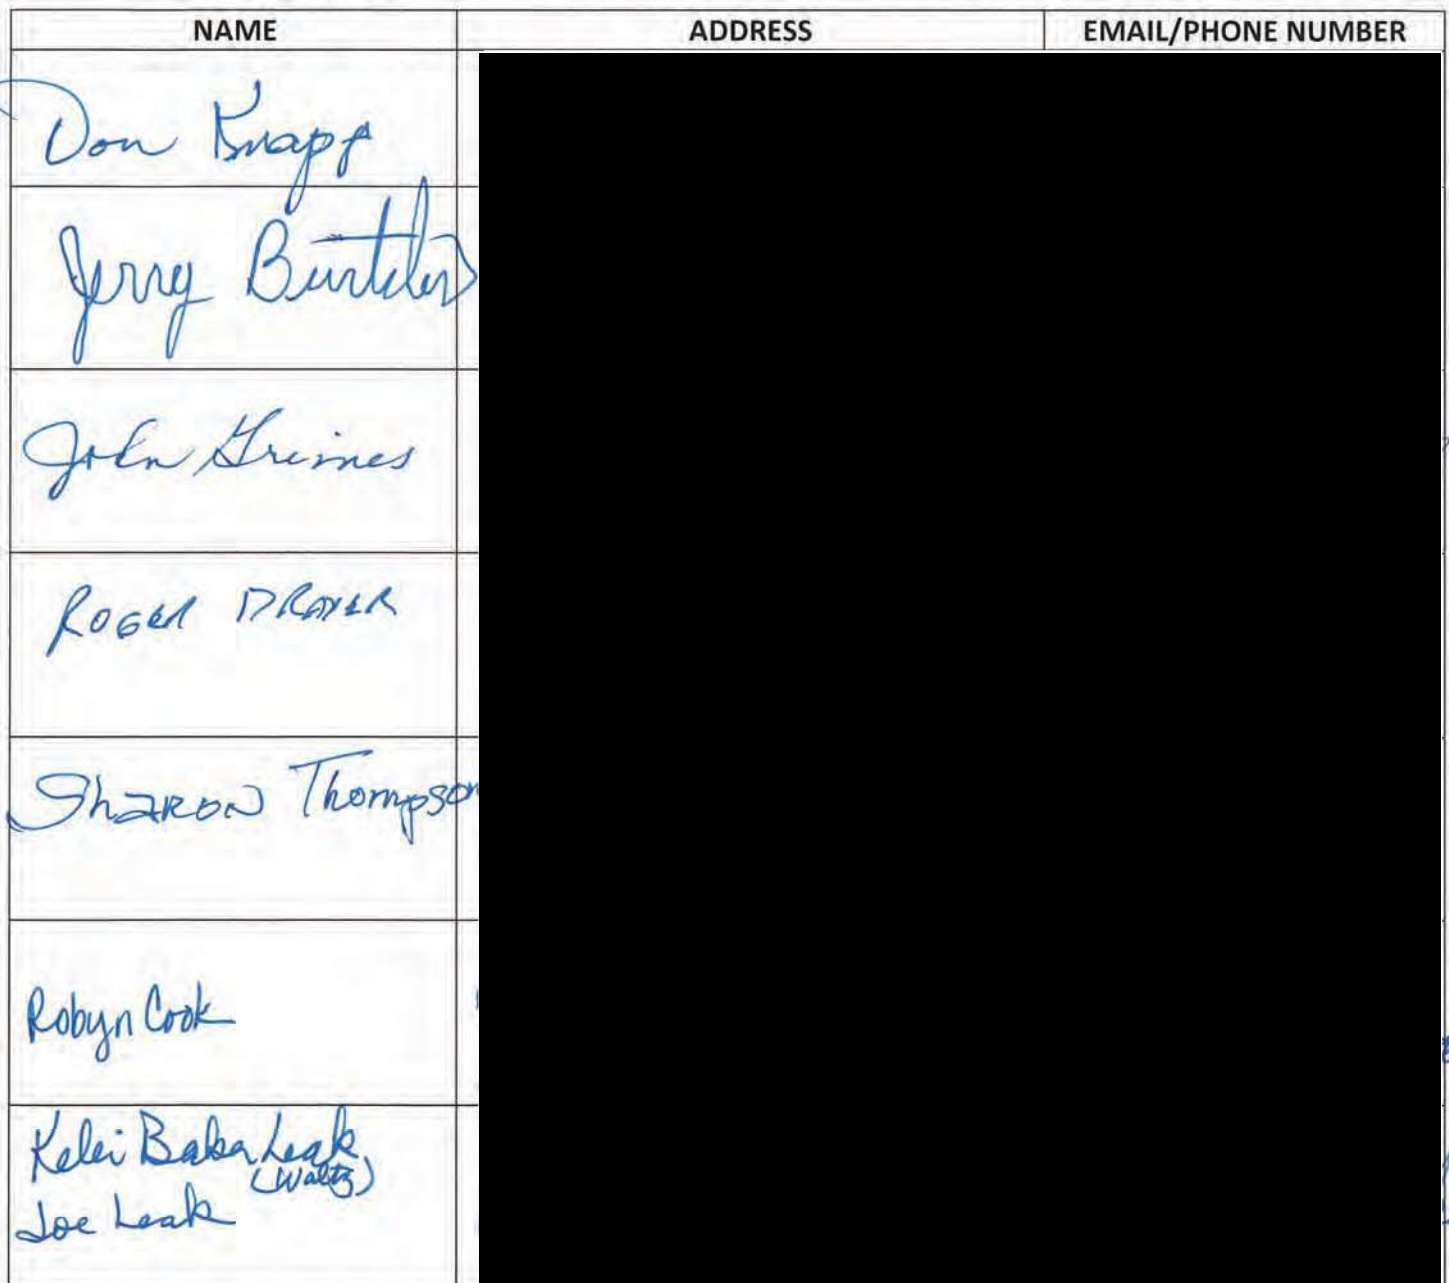 NAME ADDRESS EMAIL/PHONE NUMBER
Don Knapp
Jerry
John Grimes
ROGER DRAYER
Sharon Thompson
Robyn Cook
Baker Leak
(Waltz)
Joe Leak